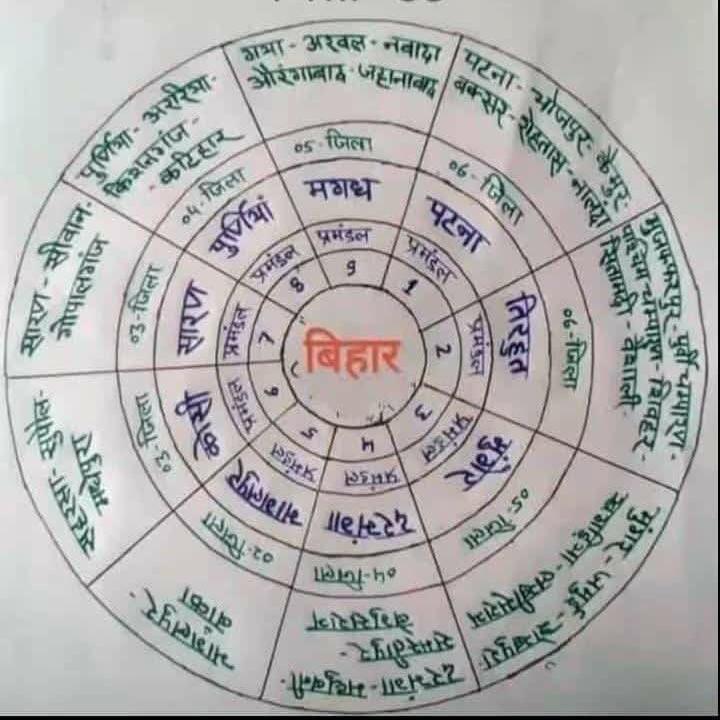 बिहार
1
प्रमंडल
पटना
06-जिला
पटना-भोजपुर-कैमुर-
बक्सर-रोहतास-नालंदा
2
प्रमंडल
तिरहुत
06-जिला
मुजफ्फरपुर-पूर्वी चम्पारण-
पश्चिम चम्पारण-शिवहर-
सितामढ़ी-वैशाली-
3
प्रमंडल
मुंगेर
05-जिला
खगड़िया-लखीसराय
मुंगेर-जमुई-शेखपुरा
4
प्रमंडल
दरभंगा
04-जिला
बेगुसराय
समस्तीपुर-
दरभंगा-मधुबनी-
5
प्रमंडल
भागलपुर
02-जिला
बांका
भागलपुर-
6
प्रमंडल
कोसी
03-जिला
सहरसा-सुपौल-
मधेपुरा
7
प्रमंडल
सारण
03-जिला
सारण-सीवान-
गोपालगंज
8
प्रमंडल
पुर्णियां
04-जिला
पुर्णिया-अररिया-
किशनगंज-
कटिहार
9
प्रमंडल
मगध
05-जिला
गया-अरवल-नवादा
औरंगाबाद-जहानाबाद